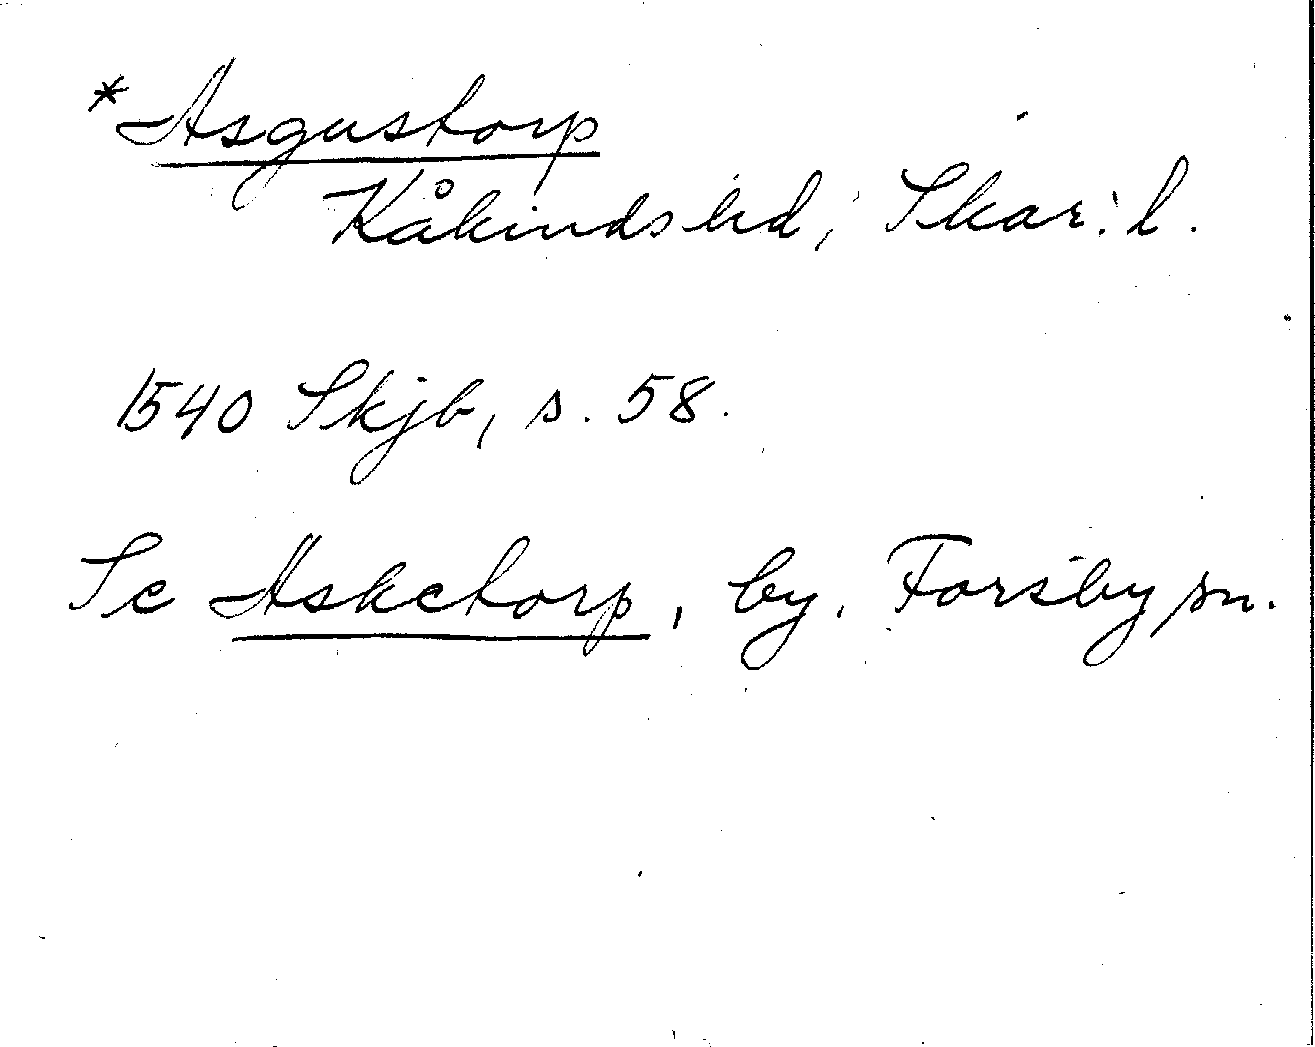 *Asgustorp
Kåkinds hd, Skar. l.
1540 Skjb, s. 58.
Se Asketorp, by, Forsby sn.